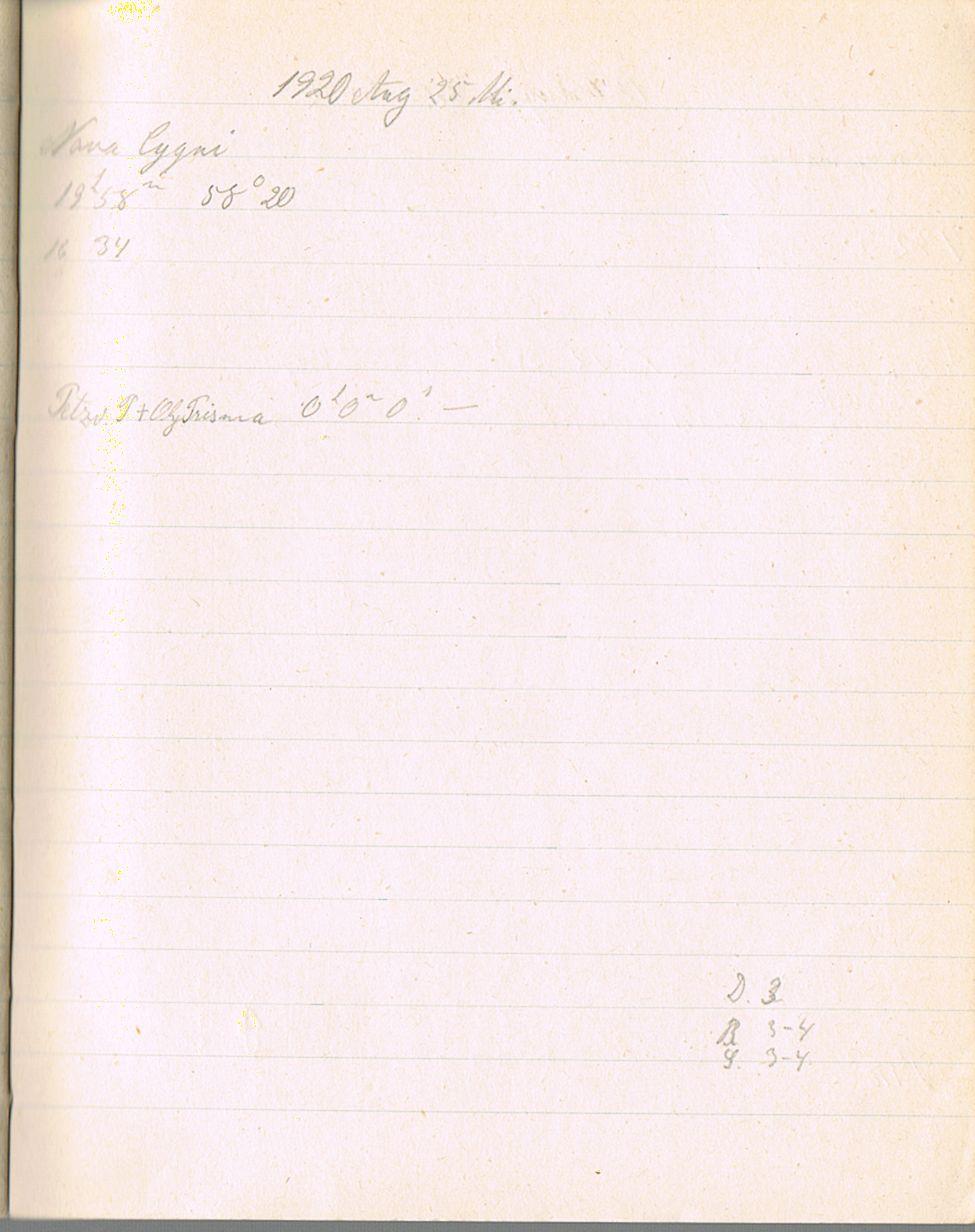 1920 Aug 25 Mi.
Nova Cygni
19ʰ58ᵐ 58°20
16 34
Petzv. P + Obj Prisma 0ʰ0ᵐ0ˢ —
D. 3
R 3-4
S. 3-4